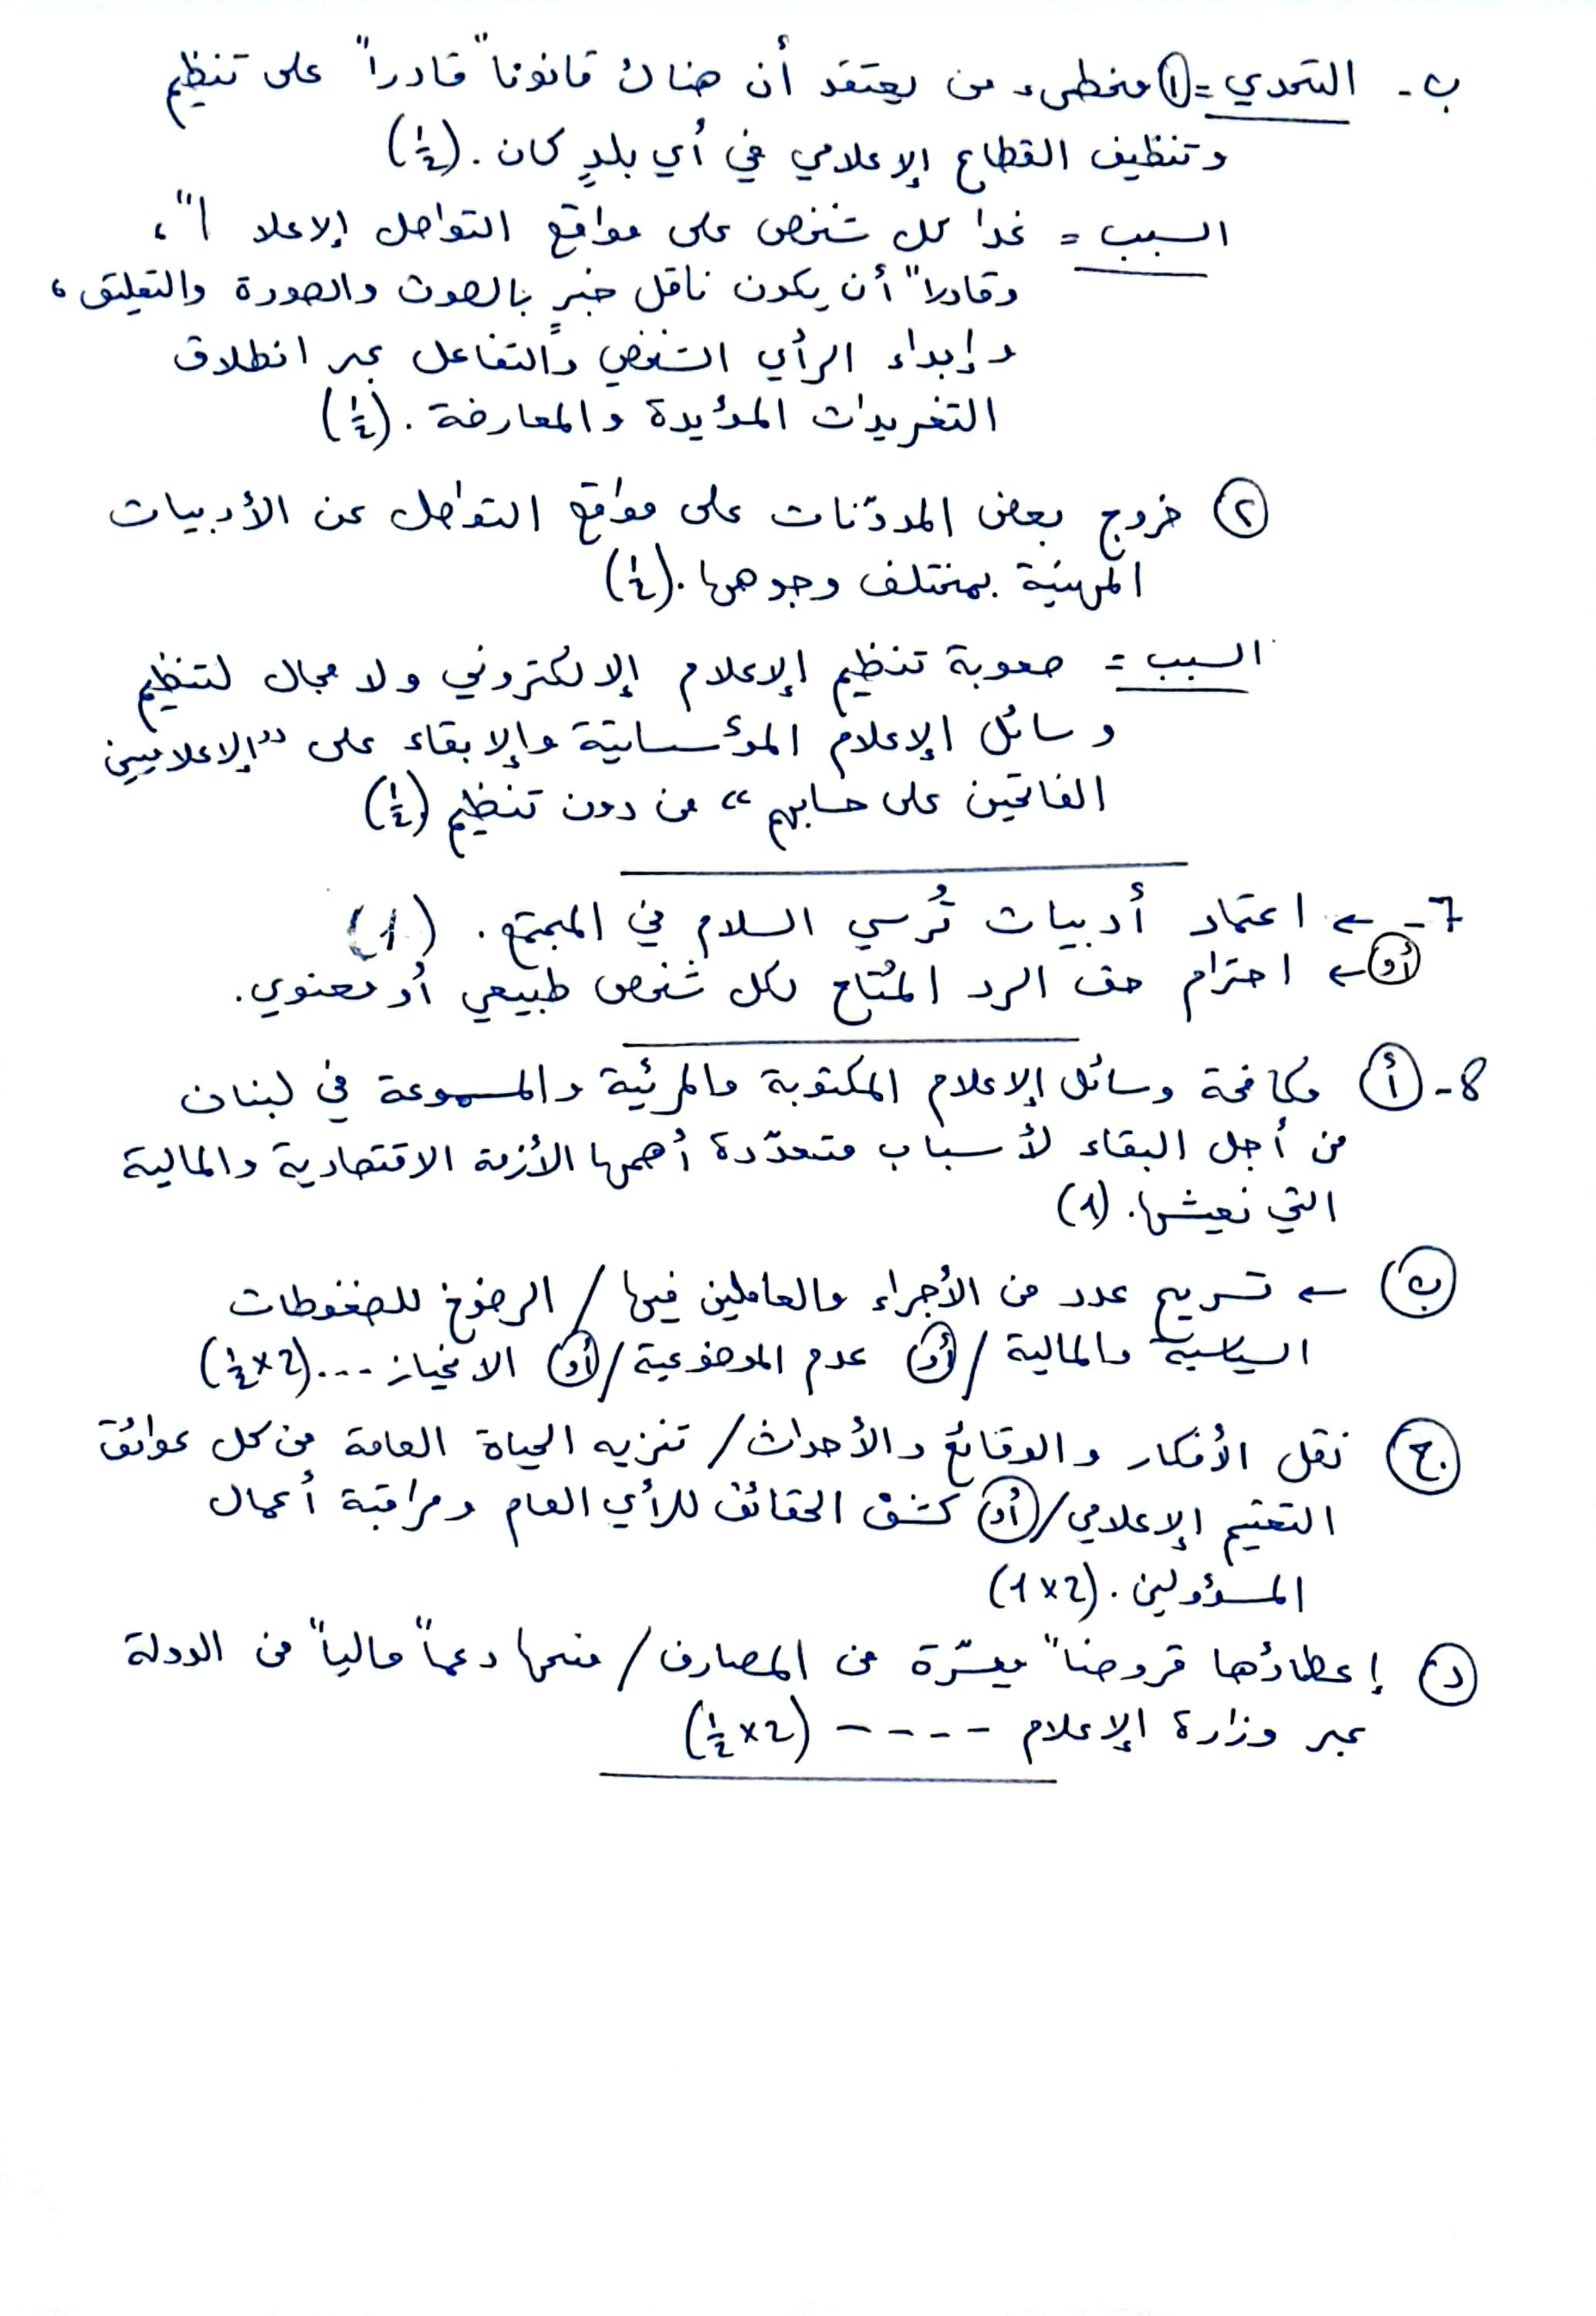 ب - التحدي = ① مخطىء من يعتقد أن هناك قانوناً قادراً على تنظيم
وتنظيف القطاع الإعلامي في أي بلدٍ كان. (½)
السبب = غدا كل شخص على مواقع التواصل إلاعلا اً،
وقادراً أن يكون ناقل خبرٍ بالصوت والصورة والتعليق،
وإبداء الرأي الشخصي والتفاعل عبر انطلاق
التغريدات المؤيدة والمعارضة. (½)
② خروج بعض المدوّنات على مواقع التواصل عن الأدبيات
المهنية بمختلف وجوهها. (½)
السبب = صعوبة تنظيم الإعلام الإلكتروني ولا مجال لتنظيم
وسائل الإعلام المؤسساتيّة والإبقاء على "الإعلاميين
الفاتحين على حسابهم" من دون تنظيم (½)
7 - ← اعتماد أدبيات تُرسي السلام في المجتمع. (1)
أو ← احترام حق الرد المُتاح لكل شخص طبيعي أو معنوي.
8 - أ مكافحة وسائل الإعلام المكتوبة والمرئية والمسموعة في لبنان
من أجل البقاء لأسباب متعدّدة أهمها الأزمة الاقتصادية والمالية
التي نعيشها. (1)
ب ← تسريح عدد من الأجراء والعاملين فيها / الرضوخ للضغوطات
السياسية والمالية / أو عدم الموضوعية / أو الانحياز --- (2×½)
ج نقل الأفكار والوقائع والأحداث / تنزيه الحياة العامة من كل عوائق
التعتيم الإعلامي / أو كشف الحقائق للرأي العام ومراقبة أعمال
المسؤولين. (2×1)
د إعطاؤها قروضاً ميسّرة من المصارف / منحها دعماً مالياً من الدولة
عبر وزارة الإعلام ---- (2×½)